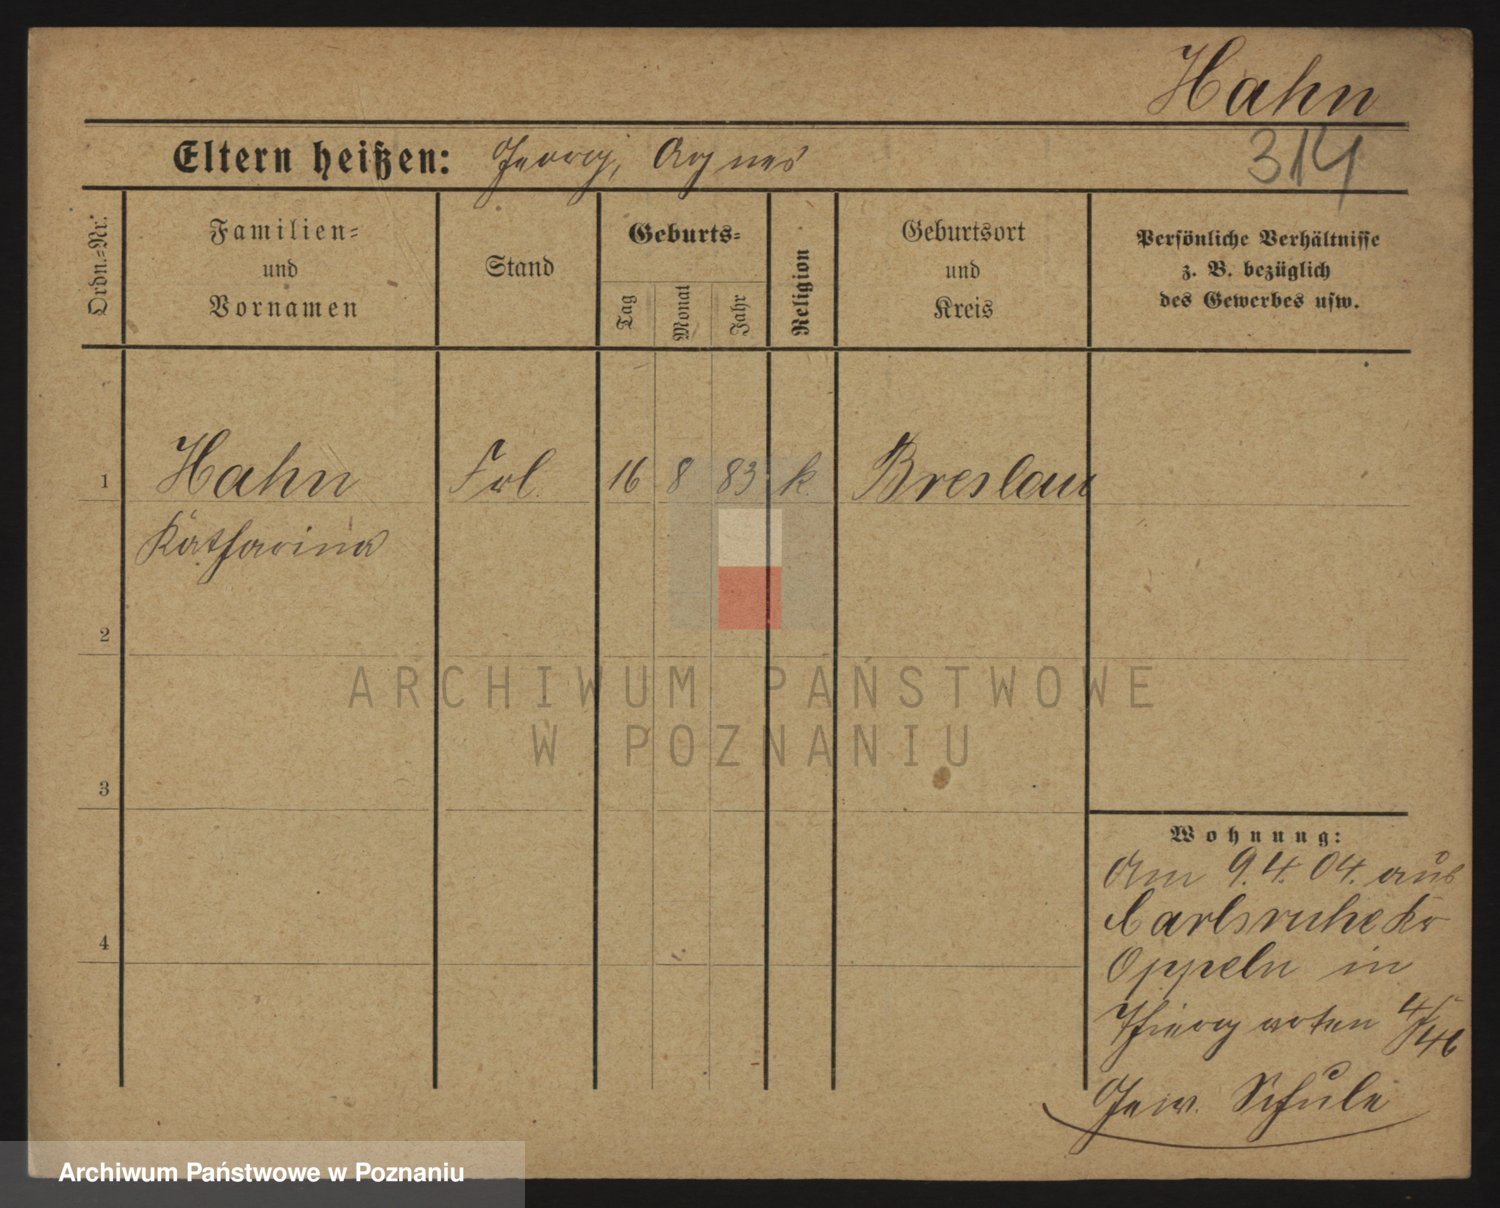 Hahn
314
Eltern heißen: Georg, Agnes
Ordn.-Nr.
Familien-
und
Vornamen
Stand
Geburts-
Tag
Monat
Jahr
Religion
Geburtsort
und
Kreis
Persönliche Verhältnisse
z. B. bezüglich
des Gewerbes usw.
1 Hahn Frl. 16 8 83 k. Breslau
Katharina
2
3
4
Wohnung:
Am 9.4.04. aus
Carlsruhe Kr
Oppeln in
Thiergarten 4/46
Gew. Schule
ARCHIWUM PAŃSTWOWE
W POZNANIU
Archiwum Państwowe w Poznaniu